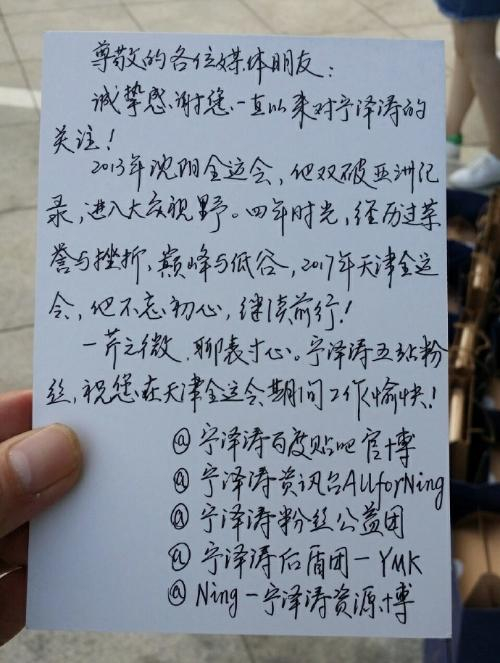 尊敬的各位媒体朋友：
诚挚感谢您一直以来对宁泽涛的
关注！
2013年沈阳全运会，他双破亚洲纪
录，进入大众视野。四年时光，经历过荣
誉与挫折，巅峰与低谷，2017年天津全运
会，他不忘初心，继续前行！
一芹之微，聊表寸心。宁泽涛五站粉
丝，祝您在天津全运会期间工作愉快！
@宁泽涛百度贴吧官博
@宁泽涛资讯台AllforNing
@宁泽涛粉丝公益团
@宁泽涛后盾团一YMK
@Ning一宁泽涛资源博